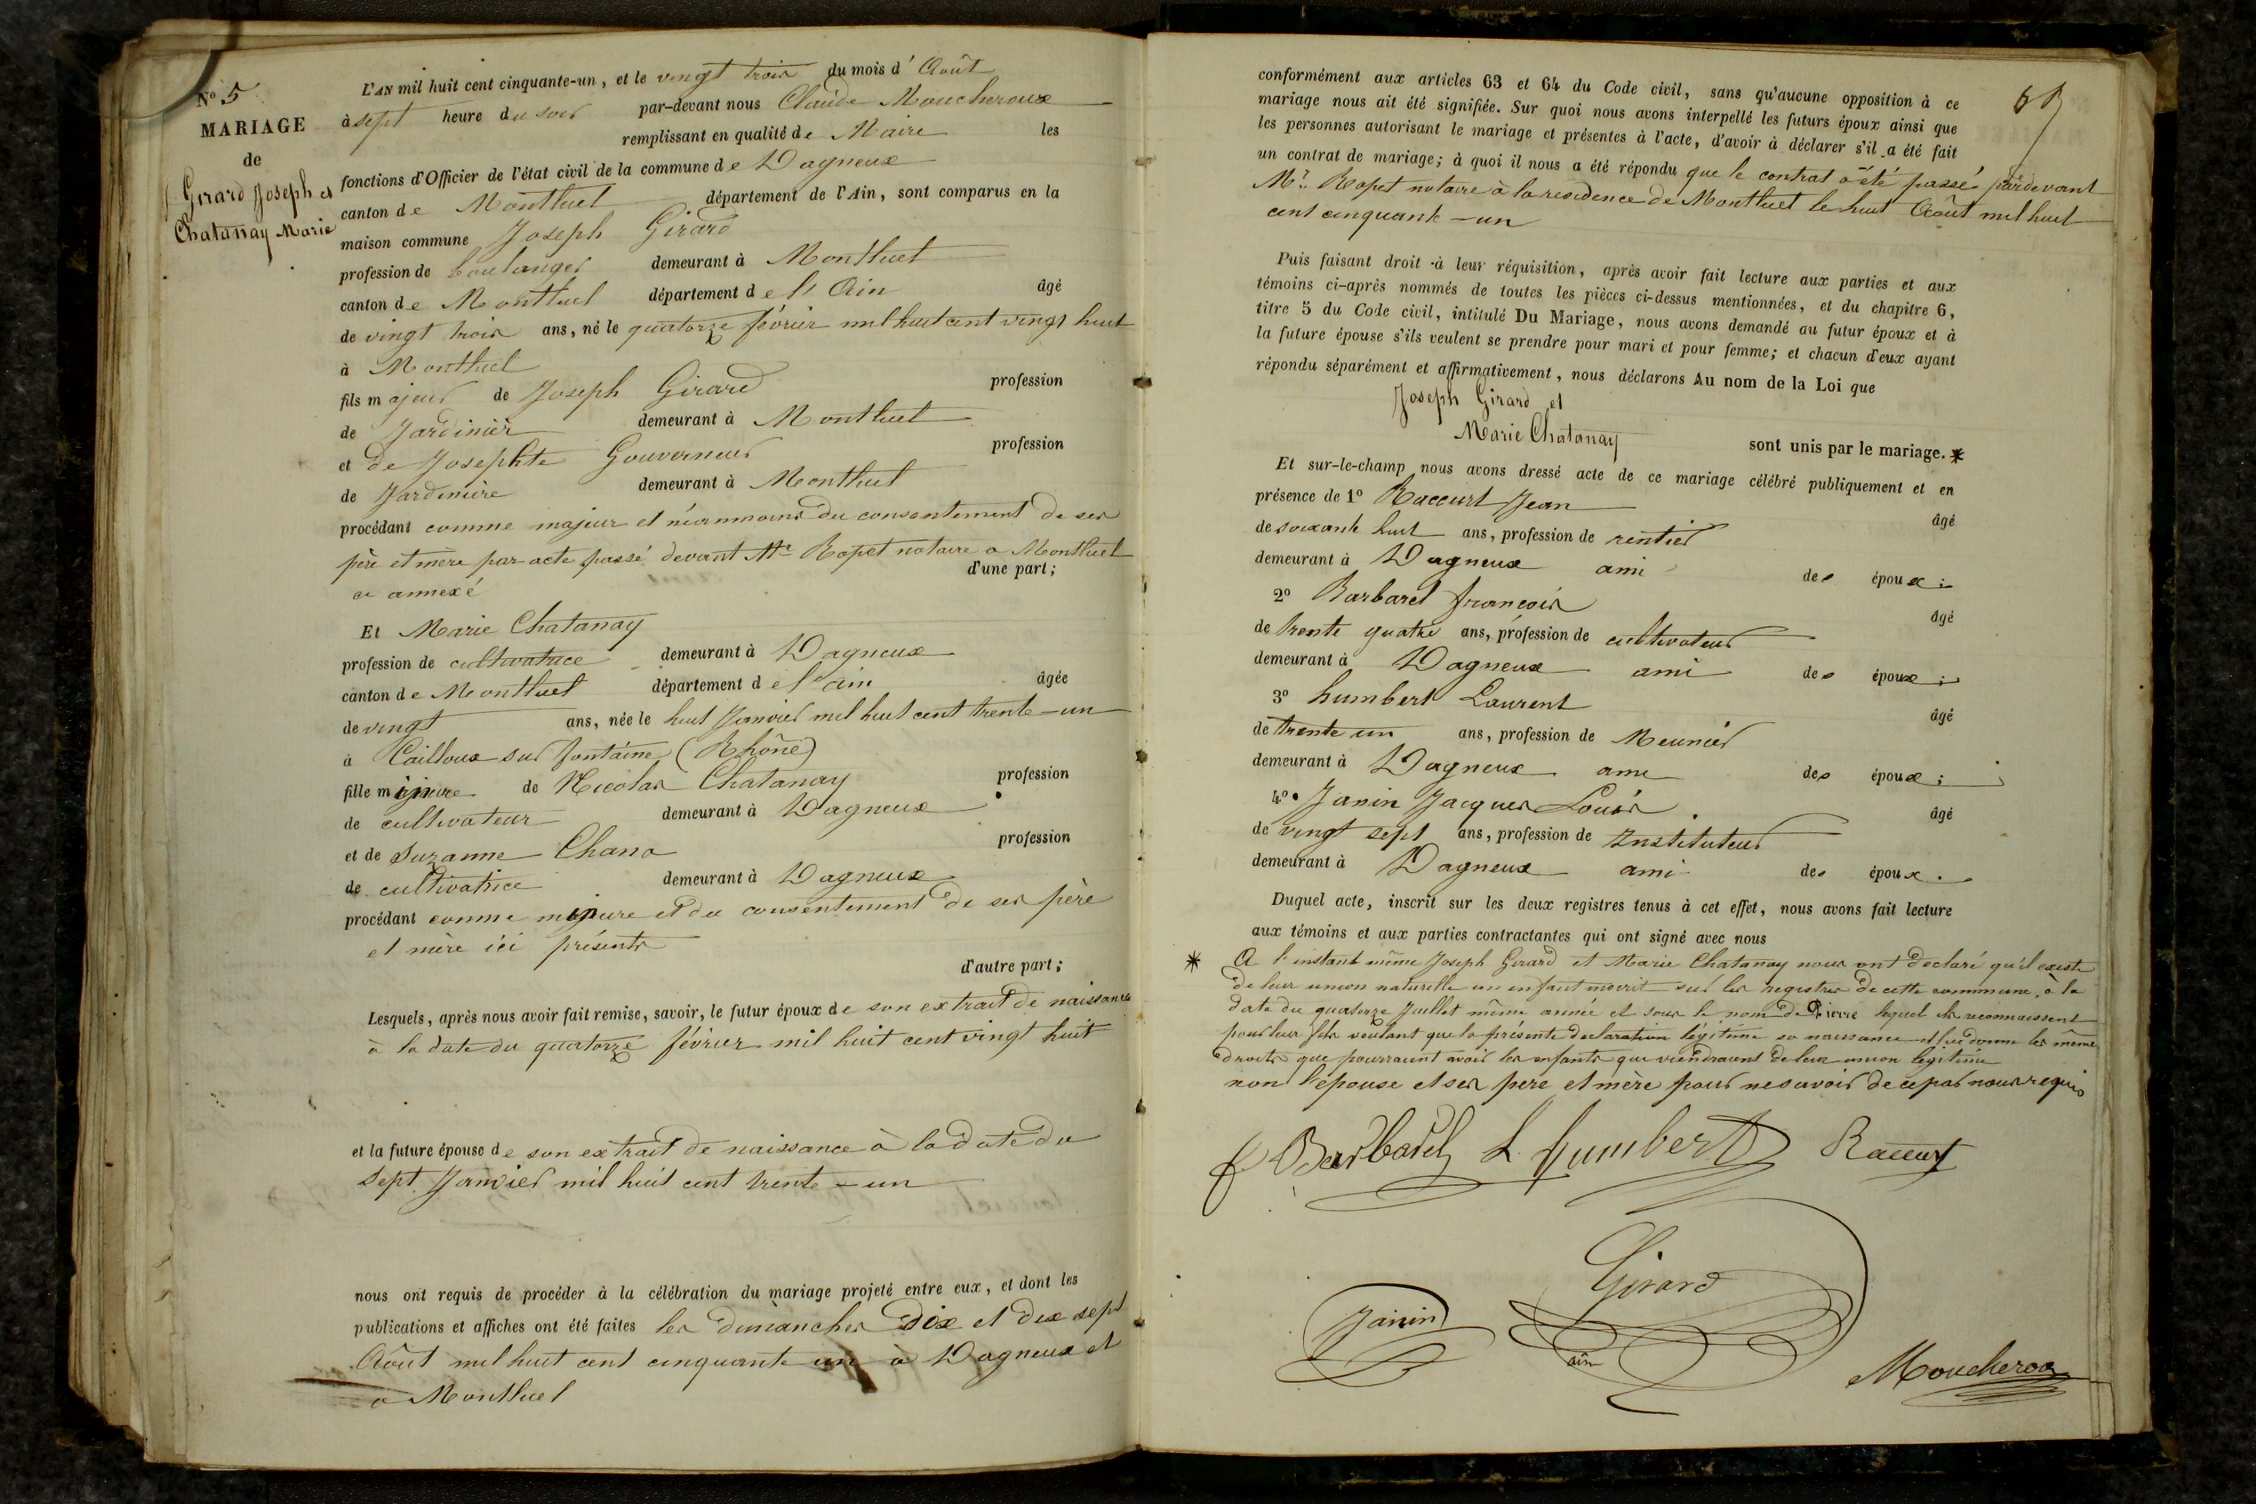 N° 5
MARIAGE
de
Girard Joseph et
Chatanay Marie
L'AN mil huit cent cinquante-un, et le vingt trois du mois d'Août
à sept heure du soir par-devant nous Claude Moucheroux
remplissant en qualité de Maire les
fonctions d'Officier de l'état civil de la commune de Dagneux
canton de Montluel département de l'Ain, sont comparus en la
maison commune Joseph Girard
profession de boulanger demeurant à Montluel
canton de Montluel département de l'Ain âgé
de vingt trois ans, né le quatorze février mil huit cent vingt huit
à Montluel
fils majeur de Joseph Girard profession
de Jardinier demeurant à Montluel
et de Josephte Gouverneur profession
de Jardinière demeurant à Montluel
procédant comme majeur et néanmoins du consentement de ses
père et mère par acte passé devant Me Ropet notaire a Montluel
d'une part;
ci annexé
Et Marie Chatanay
profession de cultivatrice demeurant à Dagneux
canton de Montluel département de l'ain âgée
de vingt ans, née le huit Janvier mil huit cent trente-un
à Cailloux sur fontaine (Rhône)
fille mineure de Nicolas Chatanay profession
de cultivateur demeurant à Dagneux
et de Suzanne Chana profession
de cultivatrice demeurant à Dagneux
procédant comme mineure et du consentement de ses père
et mère ici présents
d'autre part;
Lesquels, après nous avoir fait remise, savoir, le futur époux de son extrait de naissance
à la date du quatorze février mil huit cent vingt huit
et la future épouse de son extrait de naissance à la date du
sept Janvier mil huit cent trente-un
nous ont requis de procéder à la célébration du mariage projeté entre eux, et dont les
publications et affiches ont été faites les dimanches dix et dix sept
Août mil huit cent cinquante un à Dagneux et
a Montluel
conformément aux articles 63 et 64 du Code civil, sans qu'aucune opposition à ce
mariage nous ait été signifiée. Sur quoi nous avons interpellé les futurs époux ainsi que
les personnes autorisant le mariage et présentes à l'acte, d'avoir à déclarer s'il a été fait
un contrat de mariage; à quoi il nous a été répondu que le contrat a été passé pardevant
Me Ropet notaire à la residence de Montluel le huit Août mil huit
cent cinquante-un
Puis faisant droit à leur réquisition, après avoir fait lecture aux parties et aux
témoins ci-après nommés de toutes les pièces ci-dessus mentionnées, et du chapitre 6,
titre 5 du Code civil, intitulé Du Mariage, nous avons demandé au futur époux et à
la future épouse s'ils veulent se prendre pour mari et pour femme; et chacun d'eux ayant
répondu séparément et affirmativement, nous déclarons Au nom de la Loi que
Joseph Girard et
Marie Chatanay sont unis par le mariage. *
Et sur-le-champ nous avons dressé acte de ce mariage célébré publiquement et en
présence de 1° Raccurt Jean âgé
de soixante huit ans, profession de rentier
demeurant à Dagneux ami des époux;
2° Barbaret françois âgé
de trente quatre ans, profession de cultivateur
demeurant à Dagneux ami des époux;
3° humbert Laurent âgé
de trente un ans, profession de Meunier
demeurant à Dagneux ami des époux;
4° Janin Jacques Louis âgé
de vingt sept ans, profession de Instituteur
demeurant à Dagneux ami des époux.
Duquel acte, inscrit sur les deux registres tenus à cet effet, nous avons fait lecture
aux témoins et aux parties contractantes qui ont signé avec nous
* A l'instant même Joseph Girard et Marie Chatanay nous ont declaré qu'il existe
de leur union naturelle un enfant inscrit sur les registres de cette commune, à la
date du quatorze Juillet même année et sous le nom de Pierre lequel ils reconnaissent
pour leur fils voulant que la présente declaration légitime sa naissance et lui donne les mêmes
droits que pourraient avoir les enfants qui viendraient de leur union legitime
non l'épouse et ses pere et mère pour ne savoir de ce par nous requis
f Barbaret L. humbert Raccurt
Girard
Janin
Moucheroux